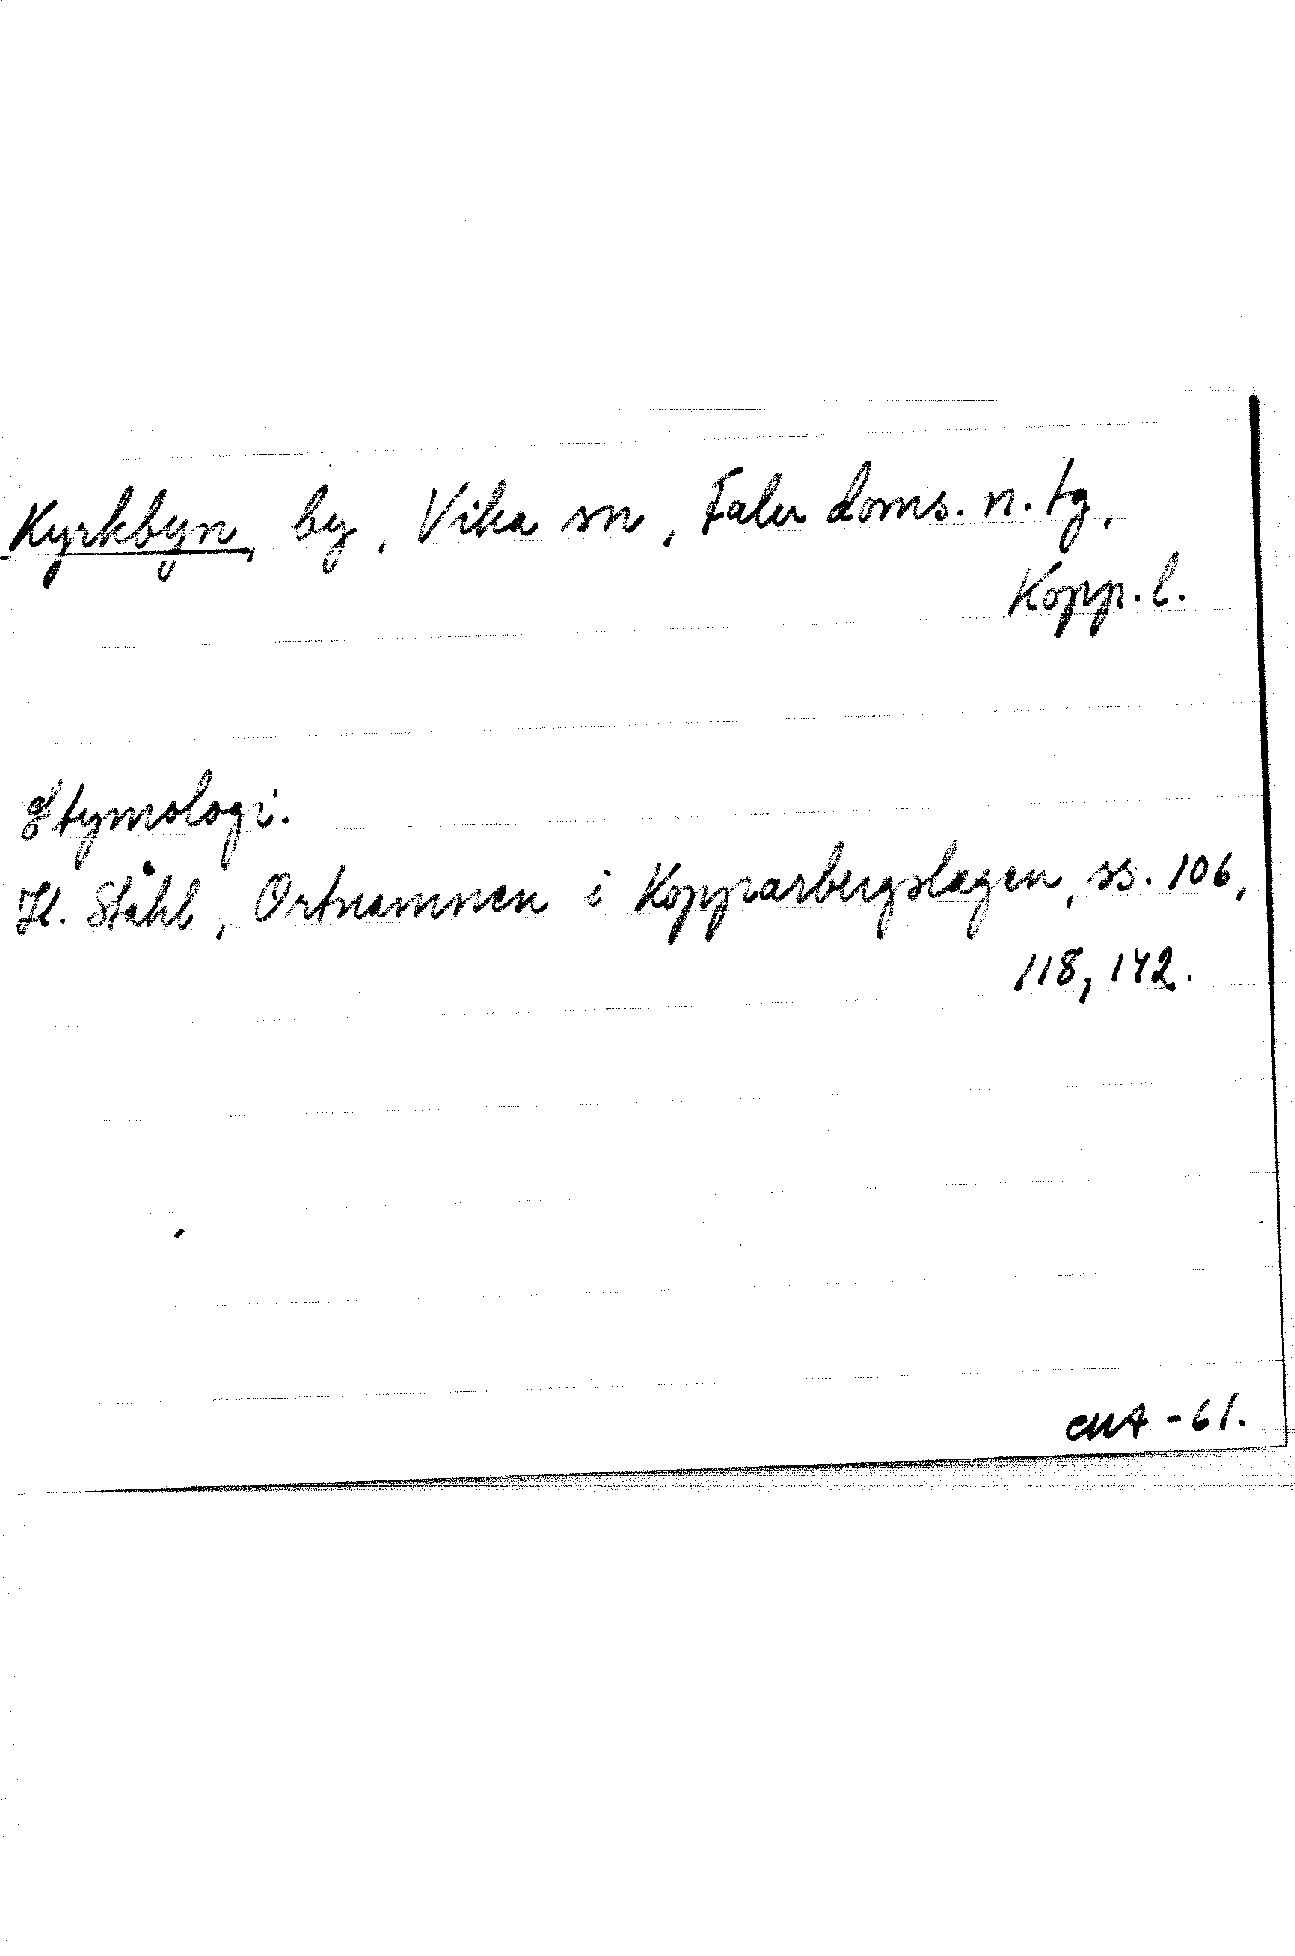 Kyrkbyn, by, Vika sn, Falu doms. n. tg,
Kopp. l.
Etymologi.
H. Ståhl, Ortnamnen i Kopparbergslagen, ss. 106,
118, 142.
EMA -61.